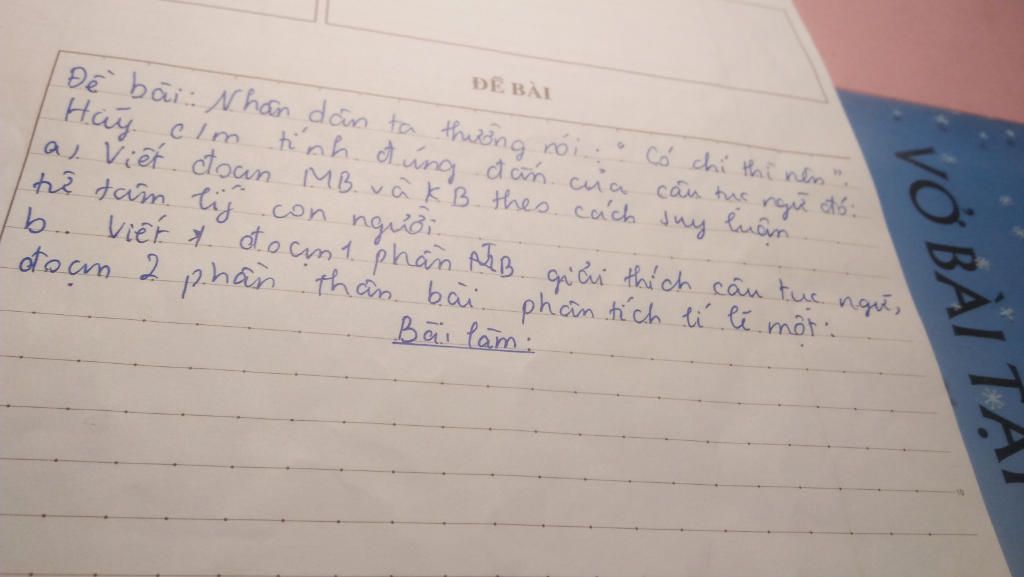 ĐỀ BÀI
Đề bài: Nhân dân ta thường nói: "Có chí thì nên".
Hãy c/m tính đúng đắn của câu tục ngữ đó:
a, Viết đoạn MB và KB theo cách suy luận
từ tâm lý con người.
b. Viết đoạn 1 phần TB giải thích câu tục ngữ,
đoạn 2 phần thân bài phân tích lí lẽ một:
Bài làm:
10
VỞ BÀI TẬ